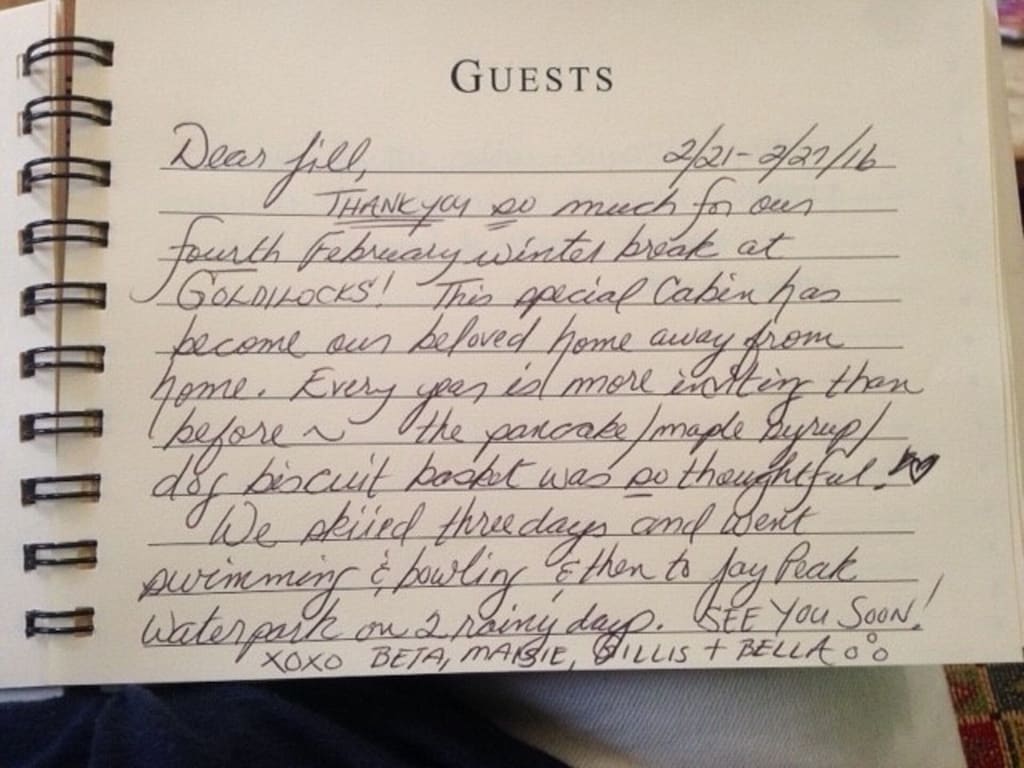 GUESTS
Dear Jill, 2/21-2/27/16
THANKYOU so much for our
fourth February winter break at
GOLDILOCKS! This special Cabin has
become our beloved home away from
home. Every year is more inviting than
before ~ the pancake/maple syrup/
dog biscuit basket was so thoughtful! ♡
We skiied three days and went
swimming & bowling & then to Jay Peak
Waterpark on 2 rainy days. SEE YOU SOON!
XOXO BETA, MAISIE, GILLIS + BELLA